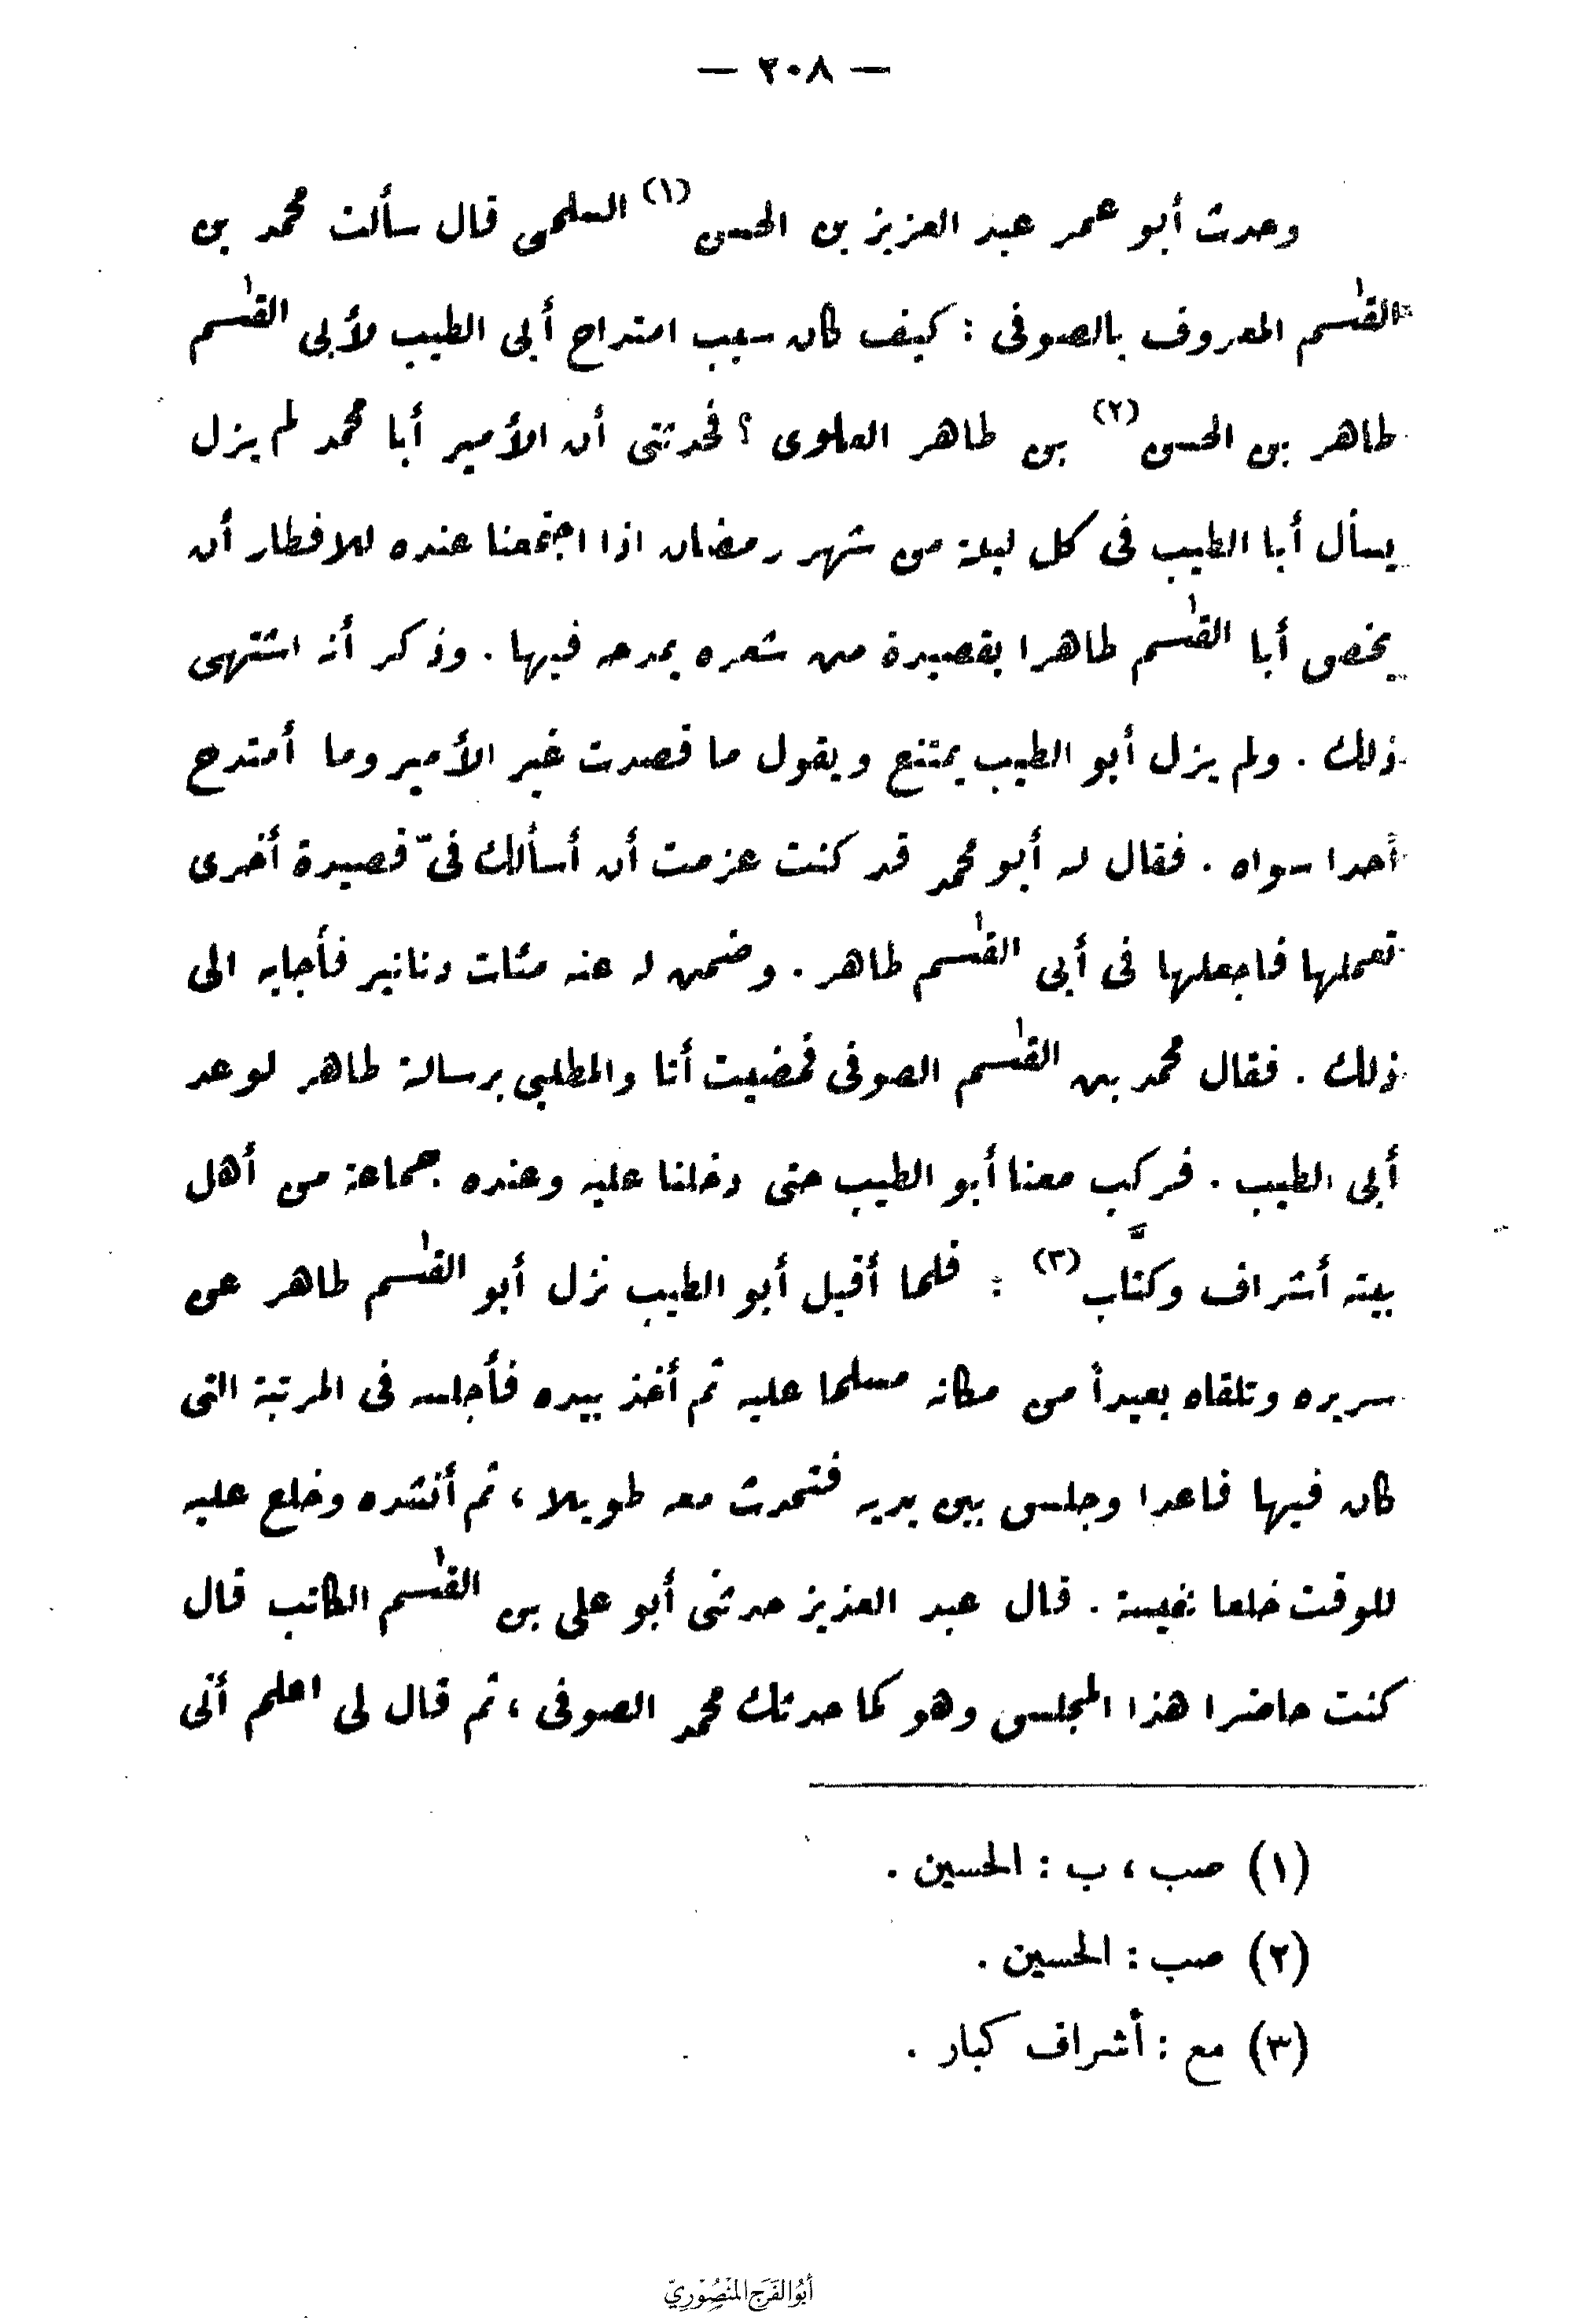 — ٢٠٨ —
وحدث أبو عمر عبد العزيز بن الحسن (١) السلمى قال سألت محمد بن
القٰسم المعروف بالصوفى : كيف كان سبب امتداح أبى الطيب لأبى القٰسم
طاهر بن الحسن (٢) بن طاهر العلوى ؟ فحدثنى أن الأمير أبا محمد لم يزل
يسأل أبا الطيب فى كل ليلة من شهر رمضان اذا اجتمعنا عنده للافطار أن
يخص أبا القٰسم طاهرا بقصيدة من شعره يمدحه فيها . وذكر أنه اشتهى
ذلك . ولم يزل أبو الطيب يمتنع ويقول ما قصدت غير الأمير وما أمتدح
أحدا سواه . فقال له أبو محمد قد كنت عزمت أن أسألك فىّ قصيدة أخرى
تعملها فاجعلها فى أبى القٰسم طاهر . وضمن له عنه مئات دنانير فأجابه الى
ذلك . فقال محمد بن القٰسم الصوفى فمضيت أنا والمطلبى برسالة طاهر لوعد
أبى الطيب . فركب معنا أبو الطيب حتى دخلنا عليه وعنده جماعة من أهل
بيته أشراف وكتَّاب (٣) : فلما أقبل أبو الطيب نزل أبو القٰسم طاهر عن
سريره وتلقاه بعيداً من مكانه مسلما عليه ثم أخذ بيده فأجلسه فى المرتبة التى
كان فيها قاعدا وجلس بين يديه فتحدث معه طويلا ، ثم أنشده وخلع عليه
للوقت خلعا نفيسة . قال عبد العزيز حدثنى أبو على بن القٰسم الكاتب قال
كنت حاضرا هذا المجلس وهو كما حدثك محمد الصوفى ، ثم قال لى اعلم أنى
(١) صب ، ب : الحسين .
(٢) صب : الحسين .
(٣) مع : أشراف كبار .
أبو الفرج المنصوري